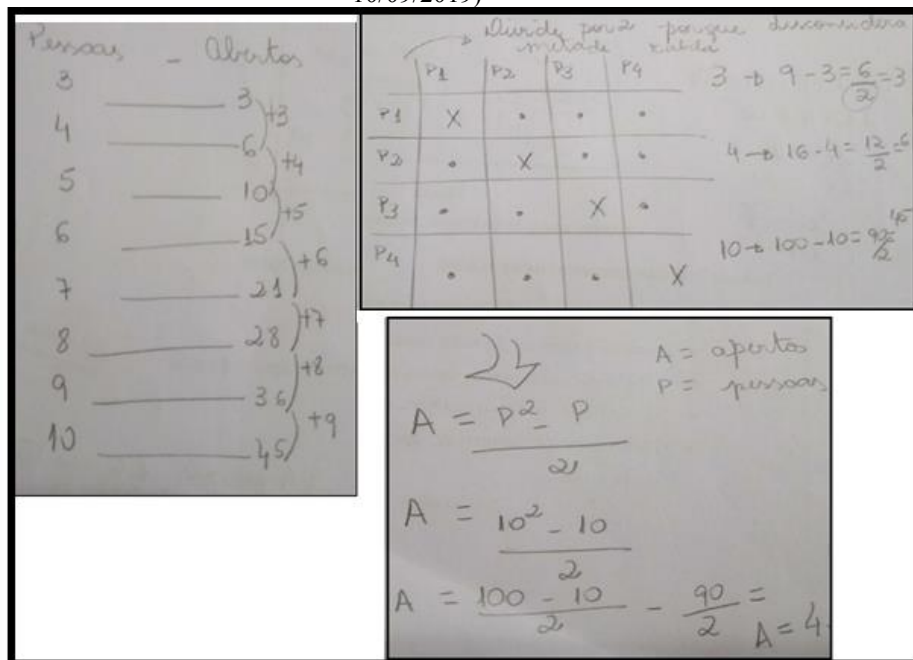 10/09/2019)
Pessoas - Abertos
3 ———— 3
+3
4 ———— 6
+4
5 ———— 10
+5
6 ———— 15
+6
7 ———— 21
+7
8 ———— 28
+8
9 ———— 36
+9
10 ———— 45
Divide por 2 porque desconsidera
metade
P1 P2 P3 P4
P1 X • • •
P2 • X • •
P3 • • X •
P4 • • • X
3 → 9 - 3 = 6/2 = 3
4 → 16 - 4 = 12/2 = 6
10 → 100 - 10 = 90/2 = 45
A = apertos
P = pessoas
A = P² - P
2
A = 10² - 10
2
A = 100 - 10 - 90 =
2 2
A = 4